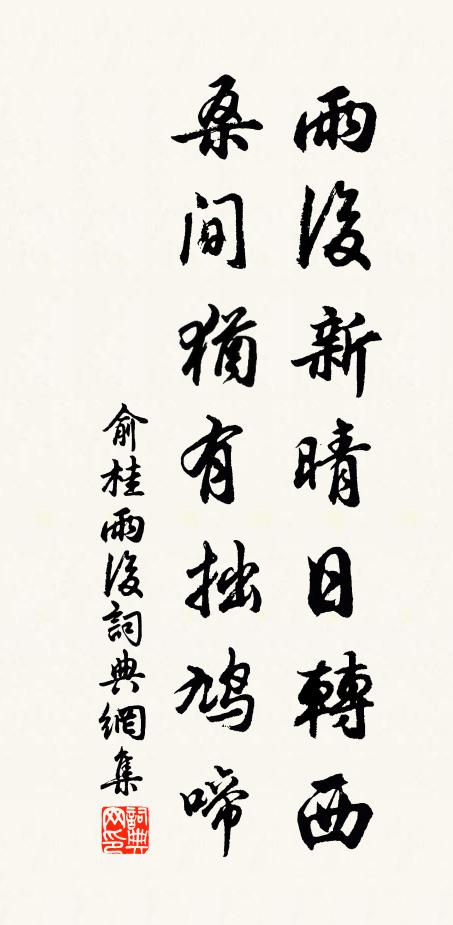 雨後新晴日轉西
桑間猶有拙鳩啼
俞桂雨後詞典網集
詞典網印